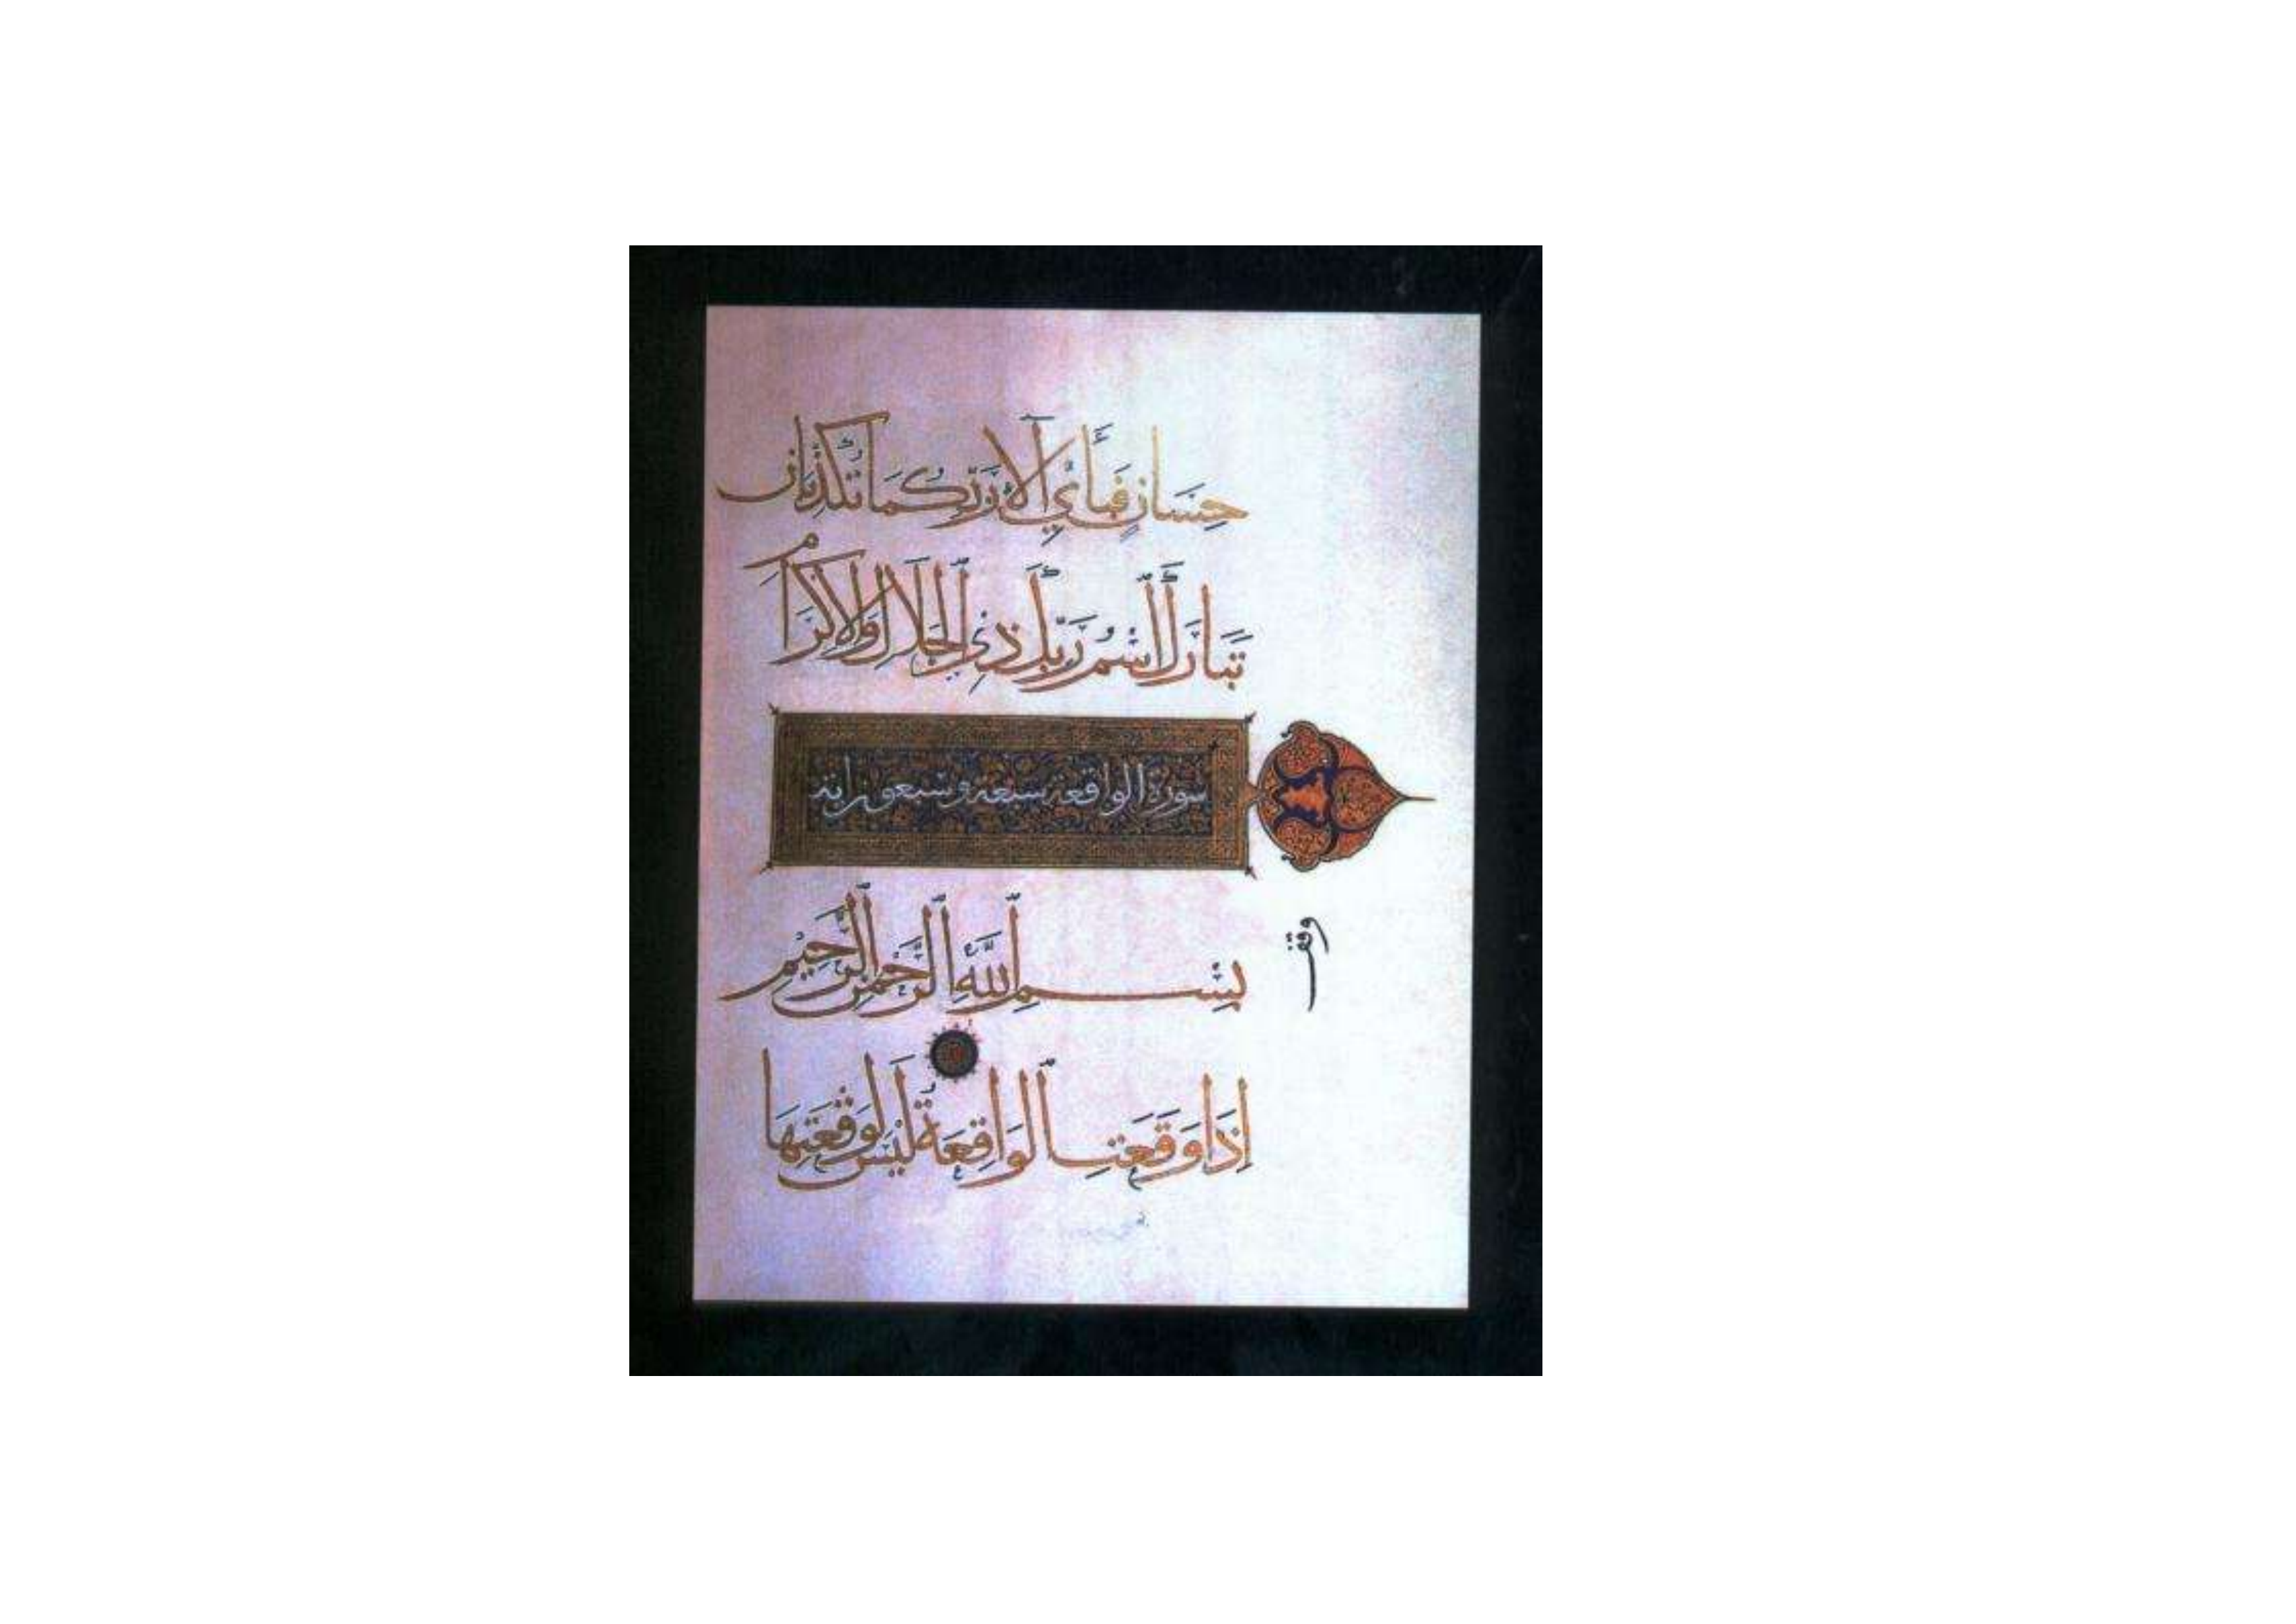 حِسَانٍ فَبِأَيِّ آلَاءِ رَبِّكُمَا تُكَذِّبَانِ
تَبَارَكَ اسْمُ رَبِّكَ ذِي الْجَلَالِ وَالْإِكْرَامِ
سورة الواقعة سبعة وسبعون اية
بِسْمِ اللَّهِ الرَّحْمٰنِ الرَّحِيْمِ
وقف
إِذَا وَقَعَتِ الْوَاقِعَةُ لَيْسَ لِوَقْعَتِهَا